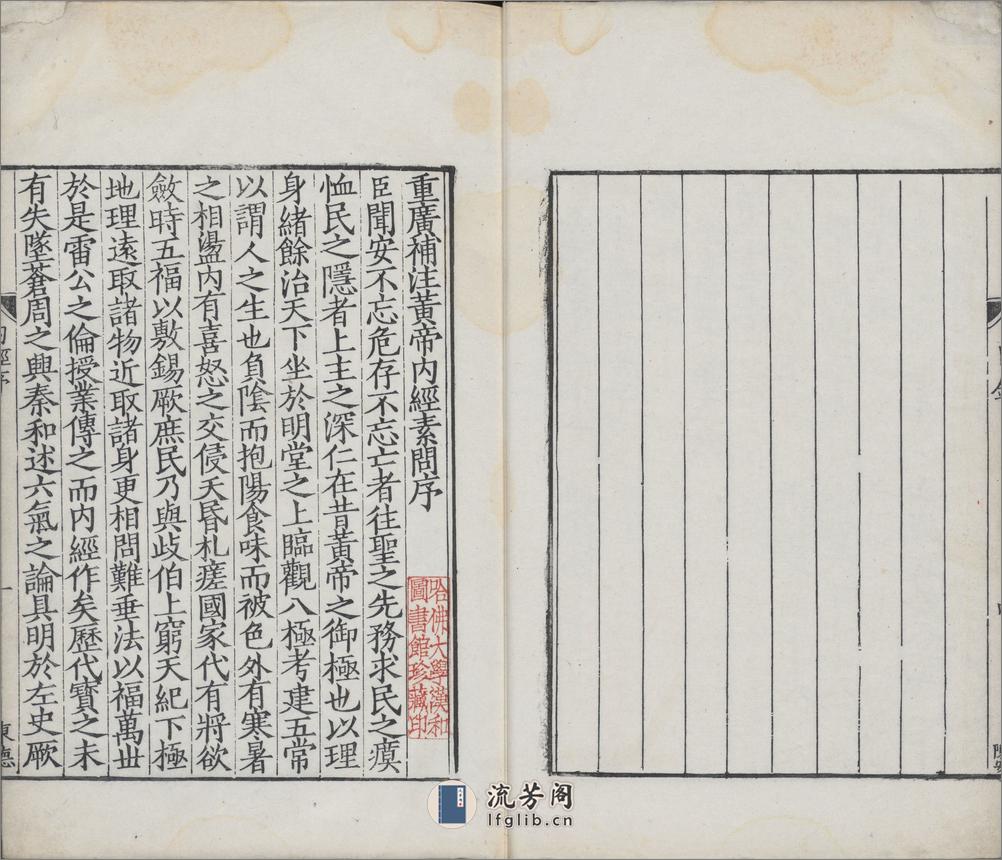 重廣補注黃帝内經素問序
臣聞安不忘危存不忘亡者往聖之先務求民之瘼
恤民之隱者上主之深仁在昔黃帝之御極也以理
身緒餘治天下坐於明堂之上臨觀八極考建五常
以謂人之生也負陰而抱陽食味而被色外有寒暑
之相盪内有喜怒之交侵夭昬札瘥國家代有將欲
斂時五福以敷錫厥庶民乃與歧伯上窮天紀下極
地理遠取諸物近取諸身更相問難垂法以福萬世
於是雷公之倫授業傳之而内經作矣歷代寶之未
有失墜蒼周之興秦和述六氣之論具明於左史厥
内經序
一
東德
哈佛大學漢和
圖書館珍藏印
流芳阁
lfglib.cn